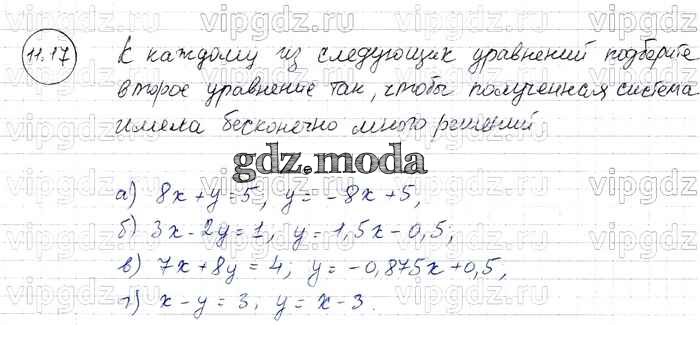 11.17
К каждому из следующих уравнений подберите
второе уравнение так, чтобы полученная система
имела бесконечно много решений
gdz.moda
а) 8x+y=5, y=-8x+5,
б) 3x-2y=1, y=1,5x-0,5;
в) 7x+8y=4; y=-0,875x+0,5,
г) x-y=3, y=x-3.
vipgdz.com